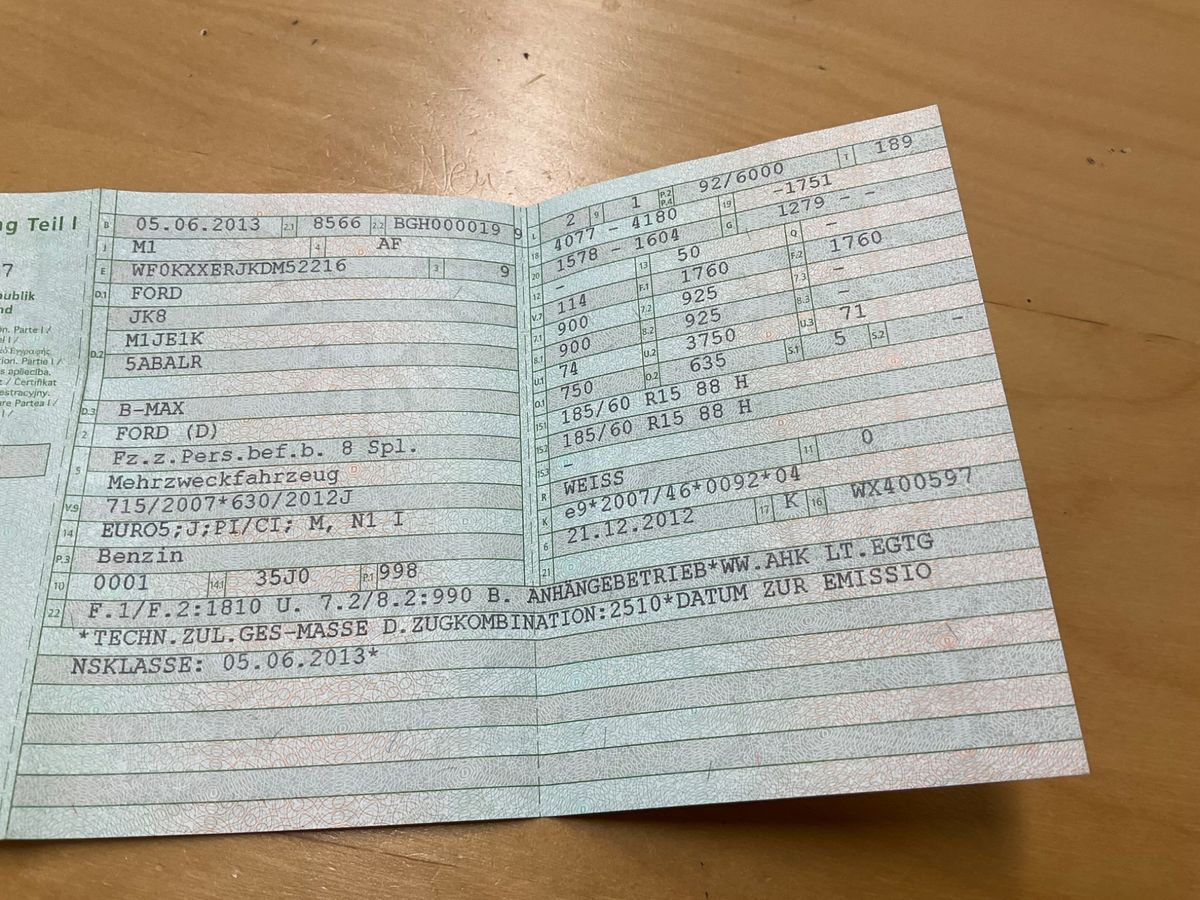 ng Teil I
7
publik
nd
ón. Parte I /
el I /
tion. Partie I /
s apliecība.
t / Certifikat
estracyjny.
are Partea I /
I /
B 05.06.2013 2.1 8566 2.2 BGH000019 9
J M1 4 AF
E WF0KXXERJKDM52216 3 9
D.1 FORD
JK8
M1JE1K
D.2 5ABALR
D.3 B-MAX
2 FORD (D)
5 Fz.z.Pers.bef.b. 8 Spl.
Mehrzweckfahrzeug
V.9 715/2007*630/2012J
14 EURO5;J;PI/CI; M, N1 I
P.3 Benzin
10 0001 14.1 35J0 P.1 998
L 2 9 1 P.2 P.4 92/6000 T 189
18 4077 - 4180 19 -1751
20 1578 - 1604 G 1279 - -
12 - 13 50 Q -
V.7 114 F.1 1760 F.2 1760
7.1 900 7.2 925 7.3 -
8.1 900 8.2 925 8.3 -
U.1 74 U.2 3750 U.3 71
O.1 750 O.2 635 S.1 5 S.2 -
15.1 185/60 R15 88 H
15.2 185/60 R15 88 H
15.3 -
R WEISS 11 0
K e9*2007/46*0092*04
6 21.12.2012 17 K 16 WX400597
21
22 F.1/F.2:1810 U. 7.2/8.2:990 B. ANHÄNGEBETRIEB*WW.AHK LT.EGTG
*TECHN.ZUL.GES-MASSE D.ZUGKOMBINATION:2510*DATUM ZUR EMISSIO
NSKLASSE: 05.06.2013*